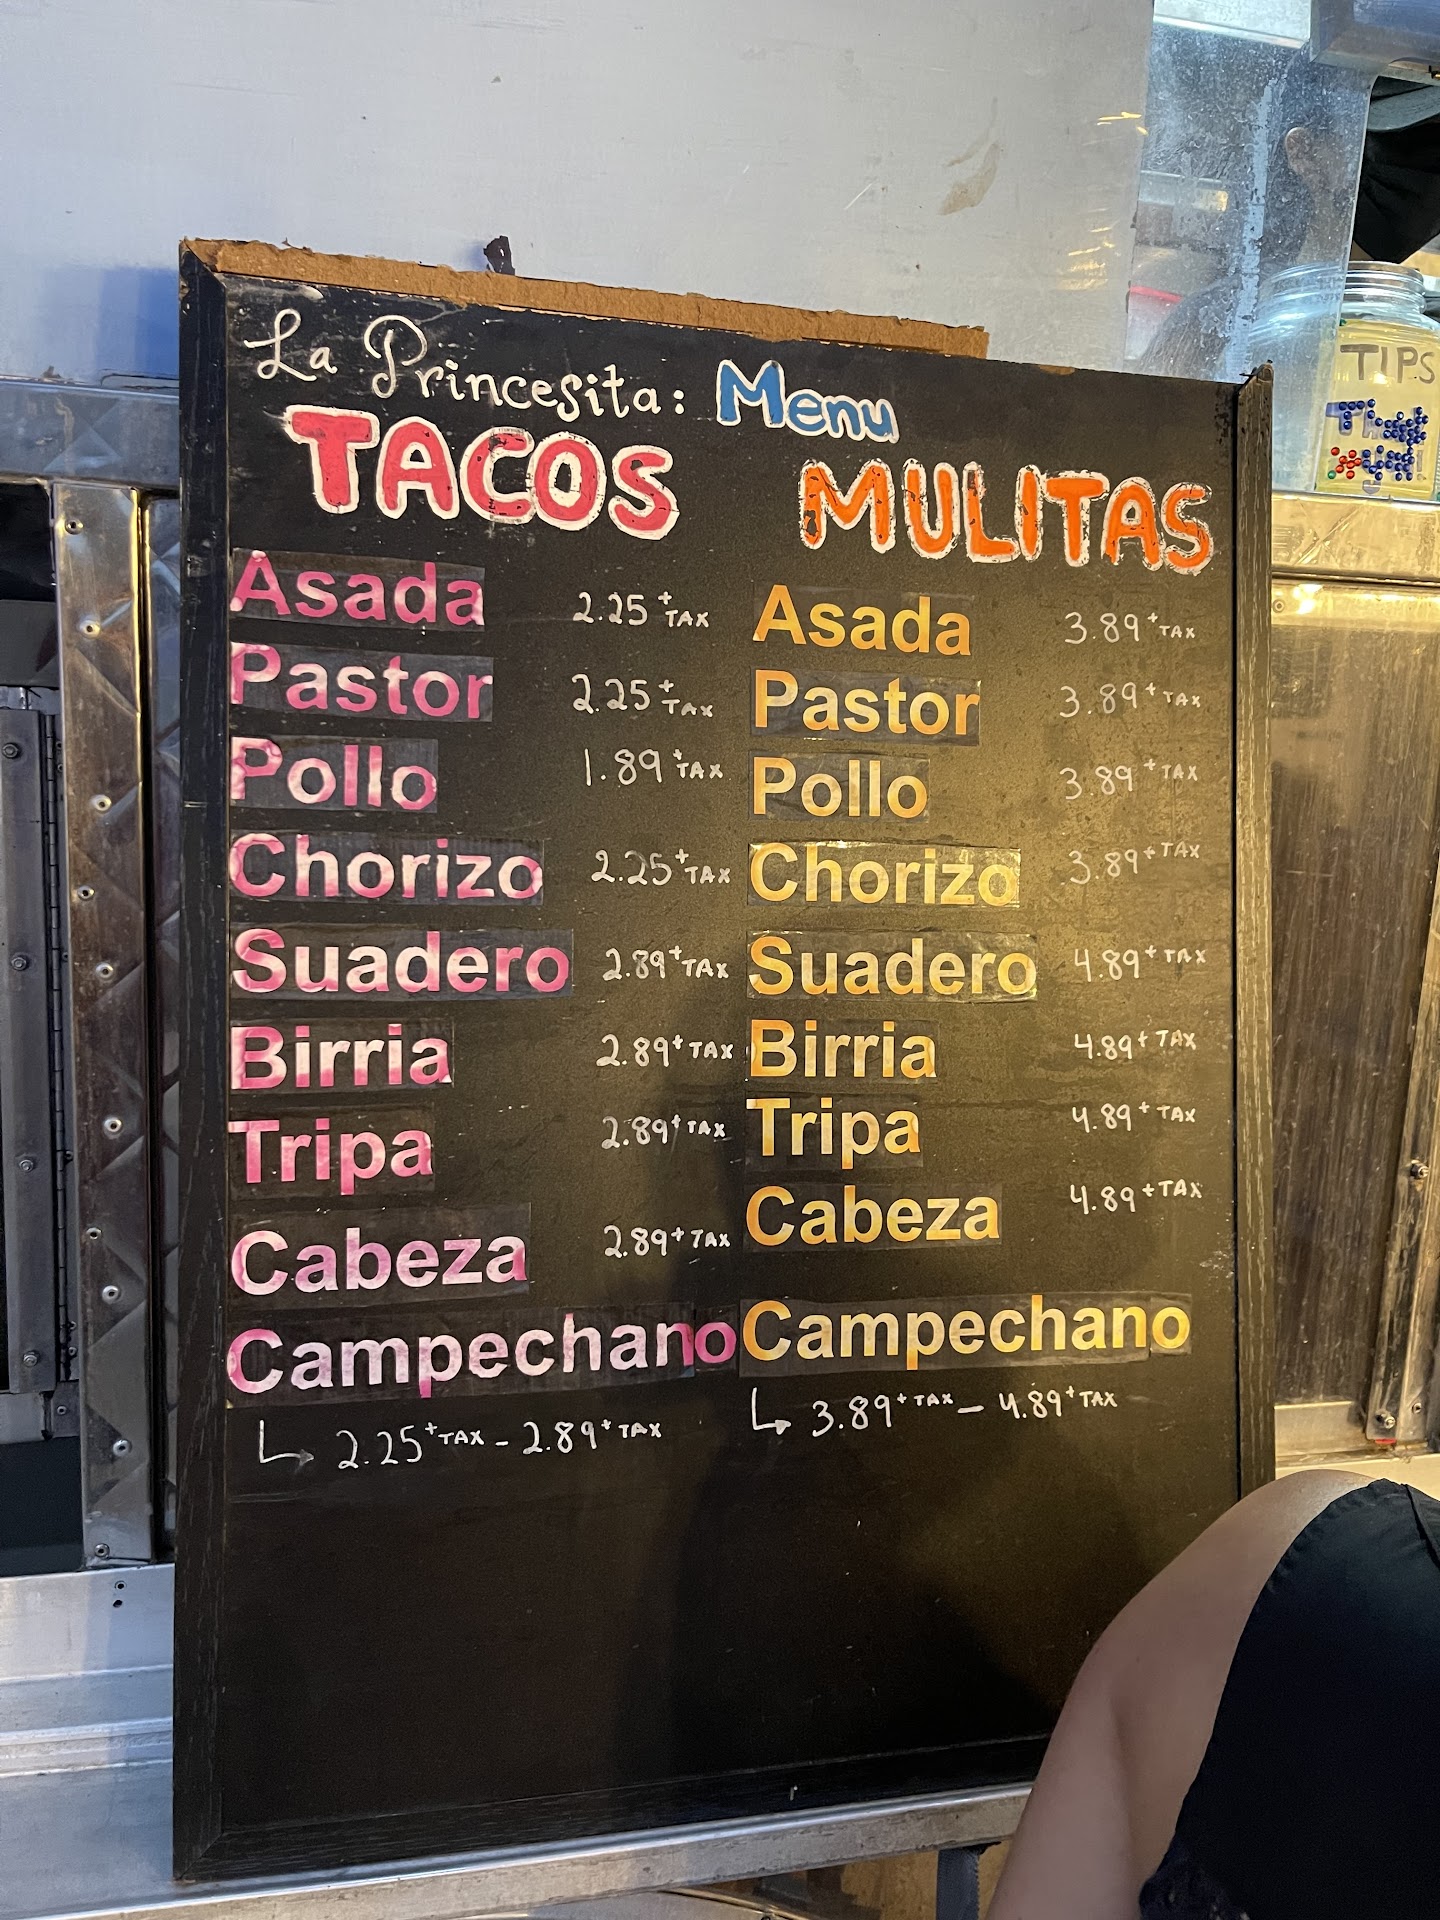 La Princesita: Menu
TACOS
Asada 2.25 + TAX
Pastor 2.25 + TAX
Pollo 1.89 + TAX
Chorizo 2.25 + TAX
Suadero 2.89 + TAX
Birria 2.89 + TAX
Tripa 2.89 + TAX
Cabeza 2.89 + TAX
Campechano
↳ 2.25 + TAX - 2.89 + TAX
MULITAS
Asada 3.89 + TAX
Pastor 3.89 + TAX
Pollo 3.89 + TAX
Chorizo 3.89 + TAX
Suadero 4.89 + TAX
Birria 4.89 + TAX
Tripa 4.89 + TAX
Cabeza 4.89 + TAX
Campechano
↳ 3.89 + TAX - 4.89 + TAX
TIPS